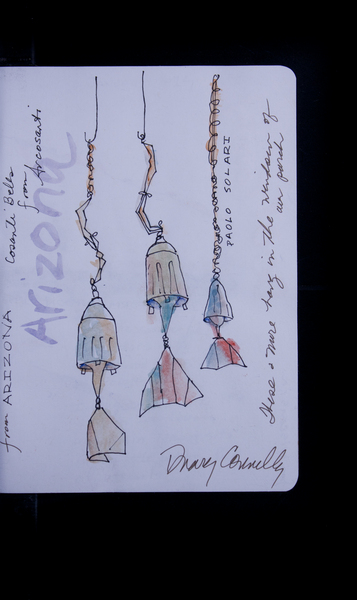 from ARIZONA
Cosanti Bells
from Arcosanti
Arizona
PAOLO SOLARI
these & more hang in the window of
our porch
Mary Connelly